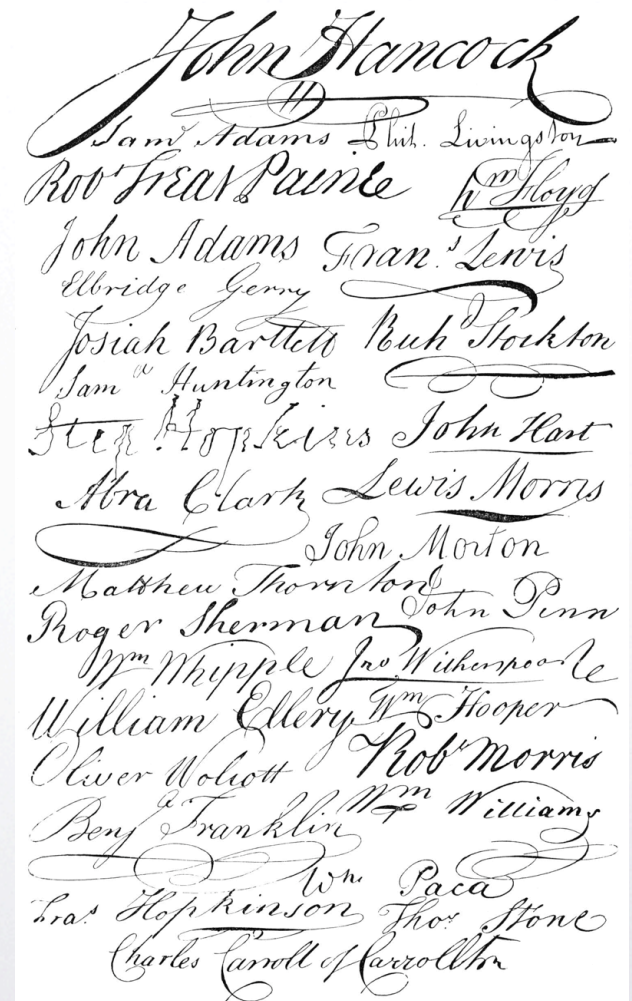 John Hancock
Sam^l Adams Phil. Livingston
Rob^t Treat Paine W^m Floyd
John Adams Fran.^s Lewis
Elbridge Gerry
Josiah Bartlett Rich^d Stockton
Sam^el Huntington
Step Hopkins John Hart
Abra Clark Lewis Morris
John Morton
Matthew Thornton
Roger Sherman John Penn
W^m Whipple Jn^o Witherspoon
William Ellery W^m Hooper
Oliver Wolcott Rob^t Morris
Benj^a Franklin W^m Williams
W^m Paca
Fra^s Hopkinson Tho^s Stone
Charles Carroll of Carrollton